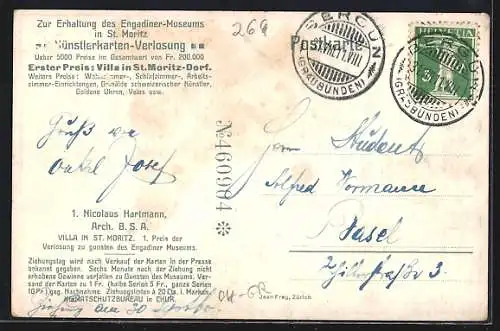 Zur Erhaltung des Engadiner-Museums
in St. Moritz
Künstlerkarten-Verlosung
Ueber 5000 Preise im Gesamtwert von Fr. 200.000
Erster Preis: Villa in St. Moritz-Dorf.
Weitere Preise: Schlafzimmer-, Arbeits-
zimmer-Einrichtungen, Gemälde schweizerischer Künstler,
Goldene Uhren, Velos usw.
269
Postkarte
BERGÜN
(GRAUBÜNDEN)
HELVETIA
(GRAUBÜNDEN)
Gruß von
Onkel Josef
No 460994 *
Herrn Student
Alfred
Basel
3.
1. Nicolaus Hartmann,
Arch. B. S. A.
VILLA IN ST. MORITZ. 1. Preis der
Verlosung zu gunsten des Engadiner Museums.
Ziehungstag wird nach Verkauf der Karten in der Presse
bekannt gegeben. Sechs Monate nach der Ziehung nicht
erhobene Gewinne verfallen zu Gunsten des Museums. Ver-
sand der Karten zu 1 Fr. (halbe Serien 5 Fr., ganze Serien
geg. Nachnahme. Ziehungslisten à 20 Cts. i. Marken.
HEIMATSCHUTZBUREAU in CHUR.
Ziehung am 30
Jean Frey, Zürich